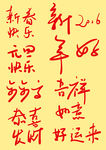 新春
快乐
新
年好
2016
元旦
快乐
吉祥
如意
恭喜
发财
好运来